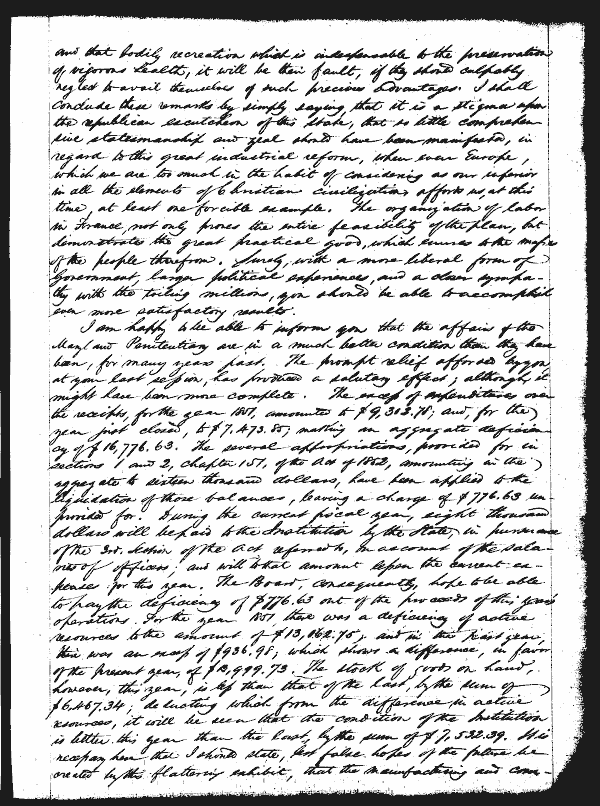 and that bodily recreation which is indespensable to the preservation
of vigorous health, it will be their fault, if they should culpably
neglect to avail themselves of such precious advantages. I shall
conclude these remarks by simply saying, that it is a stigma upon
the republican escutcheon of this State, that so little comprehen-
sive statesmanship and zeal should have been manifested, in
regard to this great industrial reform, when even Europe,
which we are too much in the habit of considering as our inferior
in all the elements of Christian civilization, affords us, at this
time, at least one forcible example. The organization of labor
in France, not only proves the entire feasibility of the plan, but
demonstrates the great practical good, which enures to the mass
of the people therefrom. Surely, with a more liberal form of
Government, larger political experiences, and a closer sympa-
thy with the toiling millions, you should be able to accomplish
even more satisfactory results.
I am happy to be able to inform you that the affairs of the
Maryland Penitentiary are in a much better condition than they have
been, for many years past. The prompt relief afforded by you
at your last session, has produced a salutary effect; although, it
might have been more complete. The excess of expenditures over
the receipts, for the year 1851, amounted to $9,302.78; and, for the
year just closed, to $7,473.85; making an aggregate deficien-
cy of $16,776.63. The several appropriations, provided for in
sections 1 and 2, chapter 151, of the Act of 1852, amounting in the
aggregate to sixteen thousand dollars, have been applied to the
liquidation of those balances, leaving a charge of $776.63 un
provided for. During the current fiscal year, eight thousand
dollars will be paid to the Institution by the State, in pursuance
of the 3rd. Section of the Act referred to, on account of the sala-
ries of officers; and will to that amount lessen the current ex-
penses for this year. The Board, consequently, hope to be able
to pay the deficiency of $776.63 out of the proceeds of this year's
operations. For the year 1851, there was a deficiency of active
resources to the amount of $13,062.75; and in the past year,
there was an excess of $936.98, which shows a difference, in favor
of the present year, of $13,999.73. The stock of goods on hand,
however, this year, is less than that of the last, by the sum of
$6,467.34; deducting which from the difference in active
resources, it will be seen that the condition of the Institution
is better this year than the last, by the sum of $7,532.39. It is
necessary here that I should state, lest false hopes of the future be
created by this flattering exhibit, that the manufacturing and com-